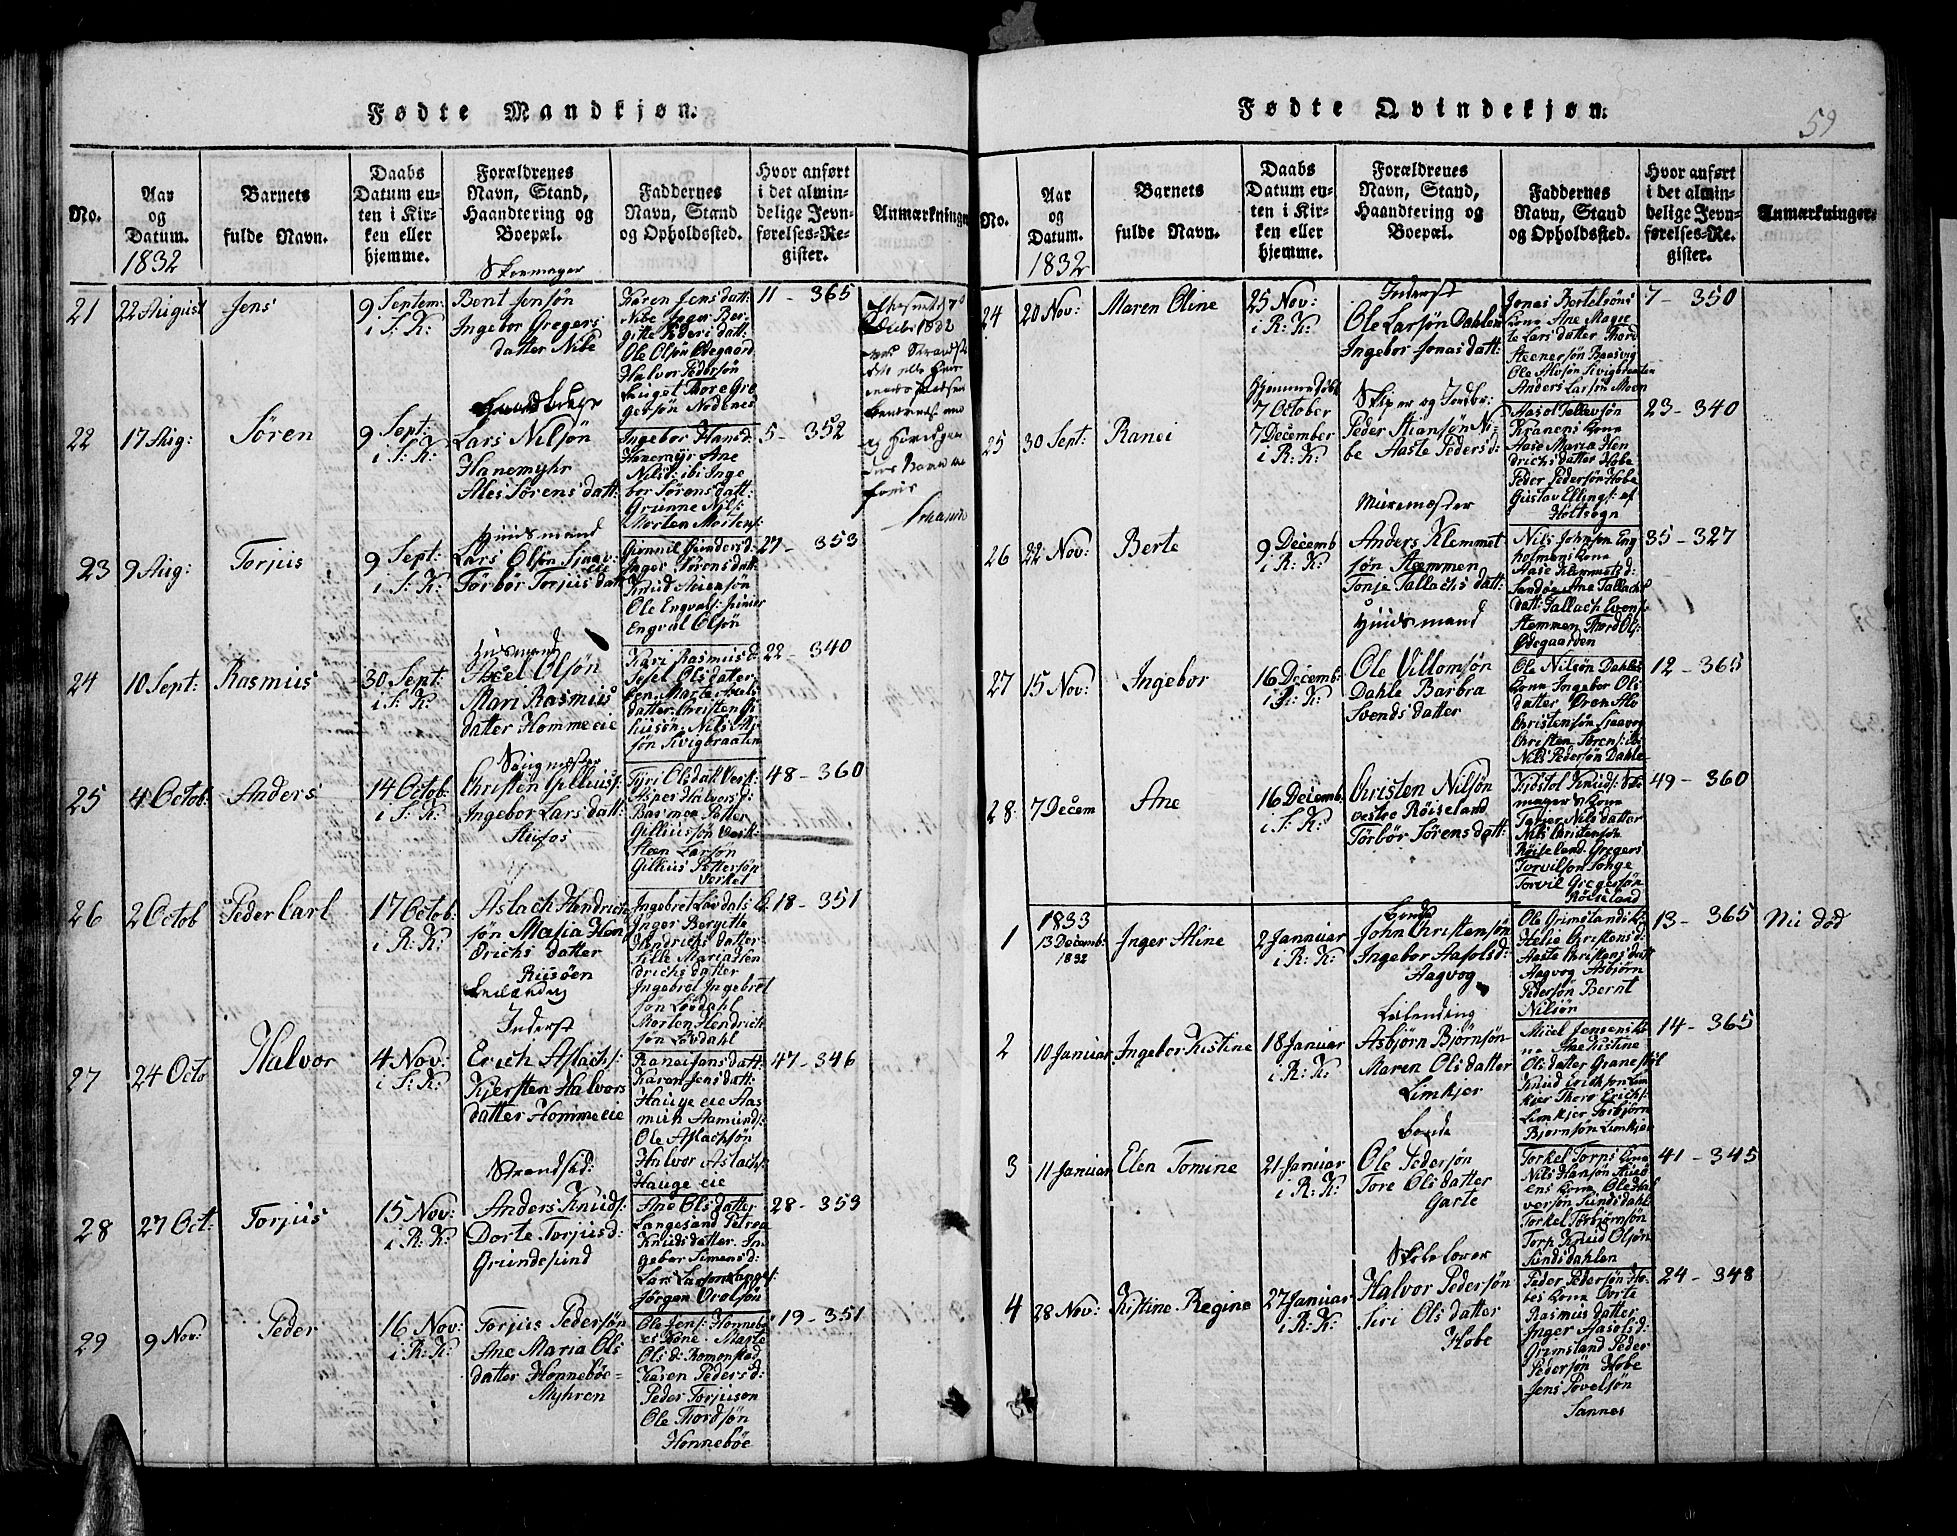 Fødte Mandkjøn.
No.
Aar
og
Datum.
1832
Barnets
fulde Navn.
Daabs
Datum en-
ten i Kir-
ken eller
hjemme.
Forældrenes
Navn, Stand,
Haandtering og
Boepæl.
Faddernes
Navn, Stand
og Opholdssted.
Hvor anført
i det almin-
delige Jevn-
førelses-Re-
gister.
Anmærkninger
21
22 August
Jens
9 Septem:
i S: K:
Skoemager
Bent Jensøn
Ingebor Gregers
datter Nibe
Karen Jens datt:
Nibe Inger Ber-
gitte Peders datt:
Ole Olsøn Ødegaard
Halvor Pedersøn
Thore Gre
gersøn Nodenes
11 - 365
22
17 Aug:
Søren
9 Sept:
i S: K:
Lars Nilsøn
Hanemyhr
Ales Sørens datt:
Ingebor Hansd:
Hanemyr Ane
Nilsd: ibi: Inge
bor Sørens datt:
Grunne Nils:
Morten Mortens:
5 - 352
23
9 Aug:
Torjus
9 Sept:
i S: K:
Huusmand
Lars Olsøn
Tørbør Torjus datt
Gunnil Gundersd:
Inger Sørens datt:
Knud Steensøn
Ole Engvals: junior
Engval Olsøn
27 - 353
24
10 Sept:
Rasmus
30 Sept:
i S: K:
Huusmand
Axel Olsøn
Mari Rasmus
datter Homme eie
Kari Rasmus d:
Sesel Ols datter
Marte Axels
datter Christen
Nils
søn Sivigbraaten
22 - 340
25
4 Octob:
Anders
14 Octob:
i S: K:
Christen Gilliuss:
Ingebor Lars datt:
Stufos
Tyri Ols datt: Verk:
Asper Halvors d:
Basmoe Petter
Gilliussøn Verk:
Steen Larsøn
Gillius Pettersøn
Verket
48 - 360
26
2 Octob
Peder Carl
17 Octob:
i R: K:
Aslach Hendrich
søn Maria Hen
drichs datter
Riisøen
Ingebret Løvdals
Inger Bergitte
Hendrichs datter
Sille Maria Hen
drichs datter
Ingebret Ingebret
søn Løvdahl
Morten Hendrich
søn Løvdahl
18 - 351
27
24 Octo
Halvor
4 Nov:
i S: K:
Inderst
Erich Aslachs:
Kjersten Halvors
datter Homme eie
Ranei Jens datt:
Karen Jens datt:
Hauge eie Aas
mun Aamunds:
Ole Aslachsøn
Halvor Aslachs:
Hauge eie
47 - 346
28
27 Oct:
Torjus
15 Nov:
i R: K:
Strandsid:
Anders Knuds:
Dorte Torjus d:
Grundesund
Ane Ols datter
Langesand Petrea
Knuds datter In
gebor Simens d:
Lars Larsøn Langes:
Jørgen Orolsøn
28 - 353
29
9 Nov:
Peder
16 Nov:
i R: K:
Torjus Pedersøn
Ane Maria Ols
datter Honnebøe
Myhren
Ole Jens: Honnebø
es Kone Marte
Ols d: Romonstad
Karen Peders d:
Peder Torjusøn
Ole Thordsøn
Honnebøe
19 - 351
Fødte Qvindekjøn.
59
No.
Aar
og
Datum.
1832
Barnets
fulde Navn.
Daabs
Datum en-
ten i Kir-
ken eller
hjemme.
Forældrenes
Navn, Stand,
Haandtering og
Boepæl.
Faddernes
Navn, Stand
og Opholdssted.
Hvor anført
i det almin-
delige Jevn-
førelses-Re-
gister.
Anmærkninger.
24
20 Nov:
Maren Oline
25 Nov:
i R: K:
Inderst
Ole Larsøn Dahlen
Ingebor Jonas datt:
Jonas Bertelsøns
Kone Ane Magre
te Lars datter Thord
Steenersøn Baasvig
Ole Alvsøn Sivigbraaten
Anders Larsøn Moen
7 - 350
25
30 Sept:
Ranei
Hjemmedøbt
7 October
7 December
i R: K:
Skiper og Jordbr:
Peder Stiansøn Ni-
be Aaste Peders d:
Aasol Tallevsøn
Kranens Kone
Aase Maria Hen
drichs datter Hobe
Peder Pedersøn Hobe
Gustav Ellings: af
Holtsogn
23 - 340
26
22 Nov:
Berte
9 Decemb
i R: K:
Muremæster
Anders Klemmet
søn Stemmen
Tonje Tallachs datt:
Nils Johnsøn Eng
holmens Kone
Aase Klemmets d:
Sandøe Ane Tallachs
datt: Tallach Evens:
Stemmen Thord Ols:
Ødegaarden
35 - 327
27
15 Nov:
Ingebor
16 Decemb:
i S: K:
Huusmand
Ole Villomsøn
Dahle Barbra
Svends datter
Ole Nilsøn Dahles
Kone Ingebor Ols
datter Oren Ale
Christensøn
Christen Sørens: ibi:
Nils Pedersøn Dahle
12 - 365
28
7 Decem
Ane
16 Decemb:
i S: K:
Christen Nilsøn
vestre Røiseland
Tørbør Sørens datt:
Kjøstol Knuds: Sko
mager Kone
Torger Nils datter
Nils Christensøn
Røiseland Gregers
Torvilsøn Songe
Torvil Gregersøn
Røiseland
49 - 360
1
1833
13 Decemb:
1832
Inger Aline
2 Januar
i R: K:
Bonde
John Christensøn
Ingebor Aasols d:
Aagvog
Ole Grimslands K:
Helie Christens d:
Aaste Christens datt
Aagvog Asbjørn
Pedersøn Bernt
Nilsøn
13 - 365
Nu død
2
10 Januar
Ingebor Kistine
18 Januar
i R: K:
Leilending
Asbjørn Bjørnsøn
Maren Ols datter
Limkjer
Micel Jensens Ko
ne Ane Kistine
Ols datter Granestøl
Knud Erichsøn Lim
kjer Thore Erichs:
Limkjer Asbjørn
Bjørnsøn Limkjer
14 - 365
3
11 Januar
Elen Tomine
21 Januar
i R: K:
Bonde
Ole Pedersøn
Tore Ols datter
Garte
Torkel Torps Kone
Nils Hansøn
ens Kone Ole Hal
vorsøn Sundsdahl
Torkel Torbjørnsøn
Torp Knud Olsøn
Sundsdahlen
41 - 345
4
28 Nov:
Kistine Regine
27 Januar
i R: K:
Skolelærer
Halvor Pedersøn
Siri Ols datter
Hobe
Peder Pedersøn Ho
bes Kone Dorte
Rasmus datter
Inger Aasols d:
Grimsland Peder
Pedersøn Hobe
Jens Povelsøn
Sannes
24 - 348